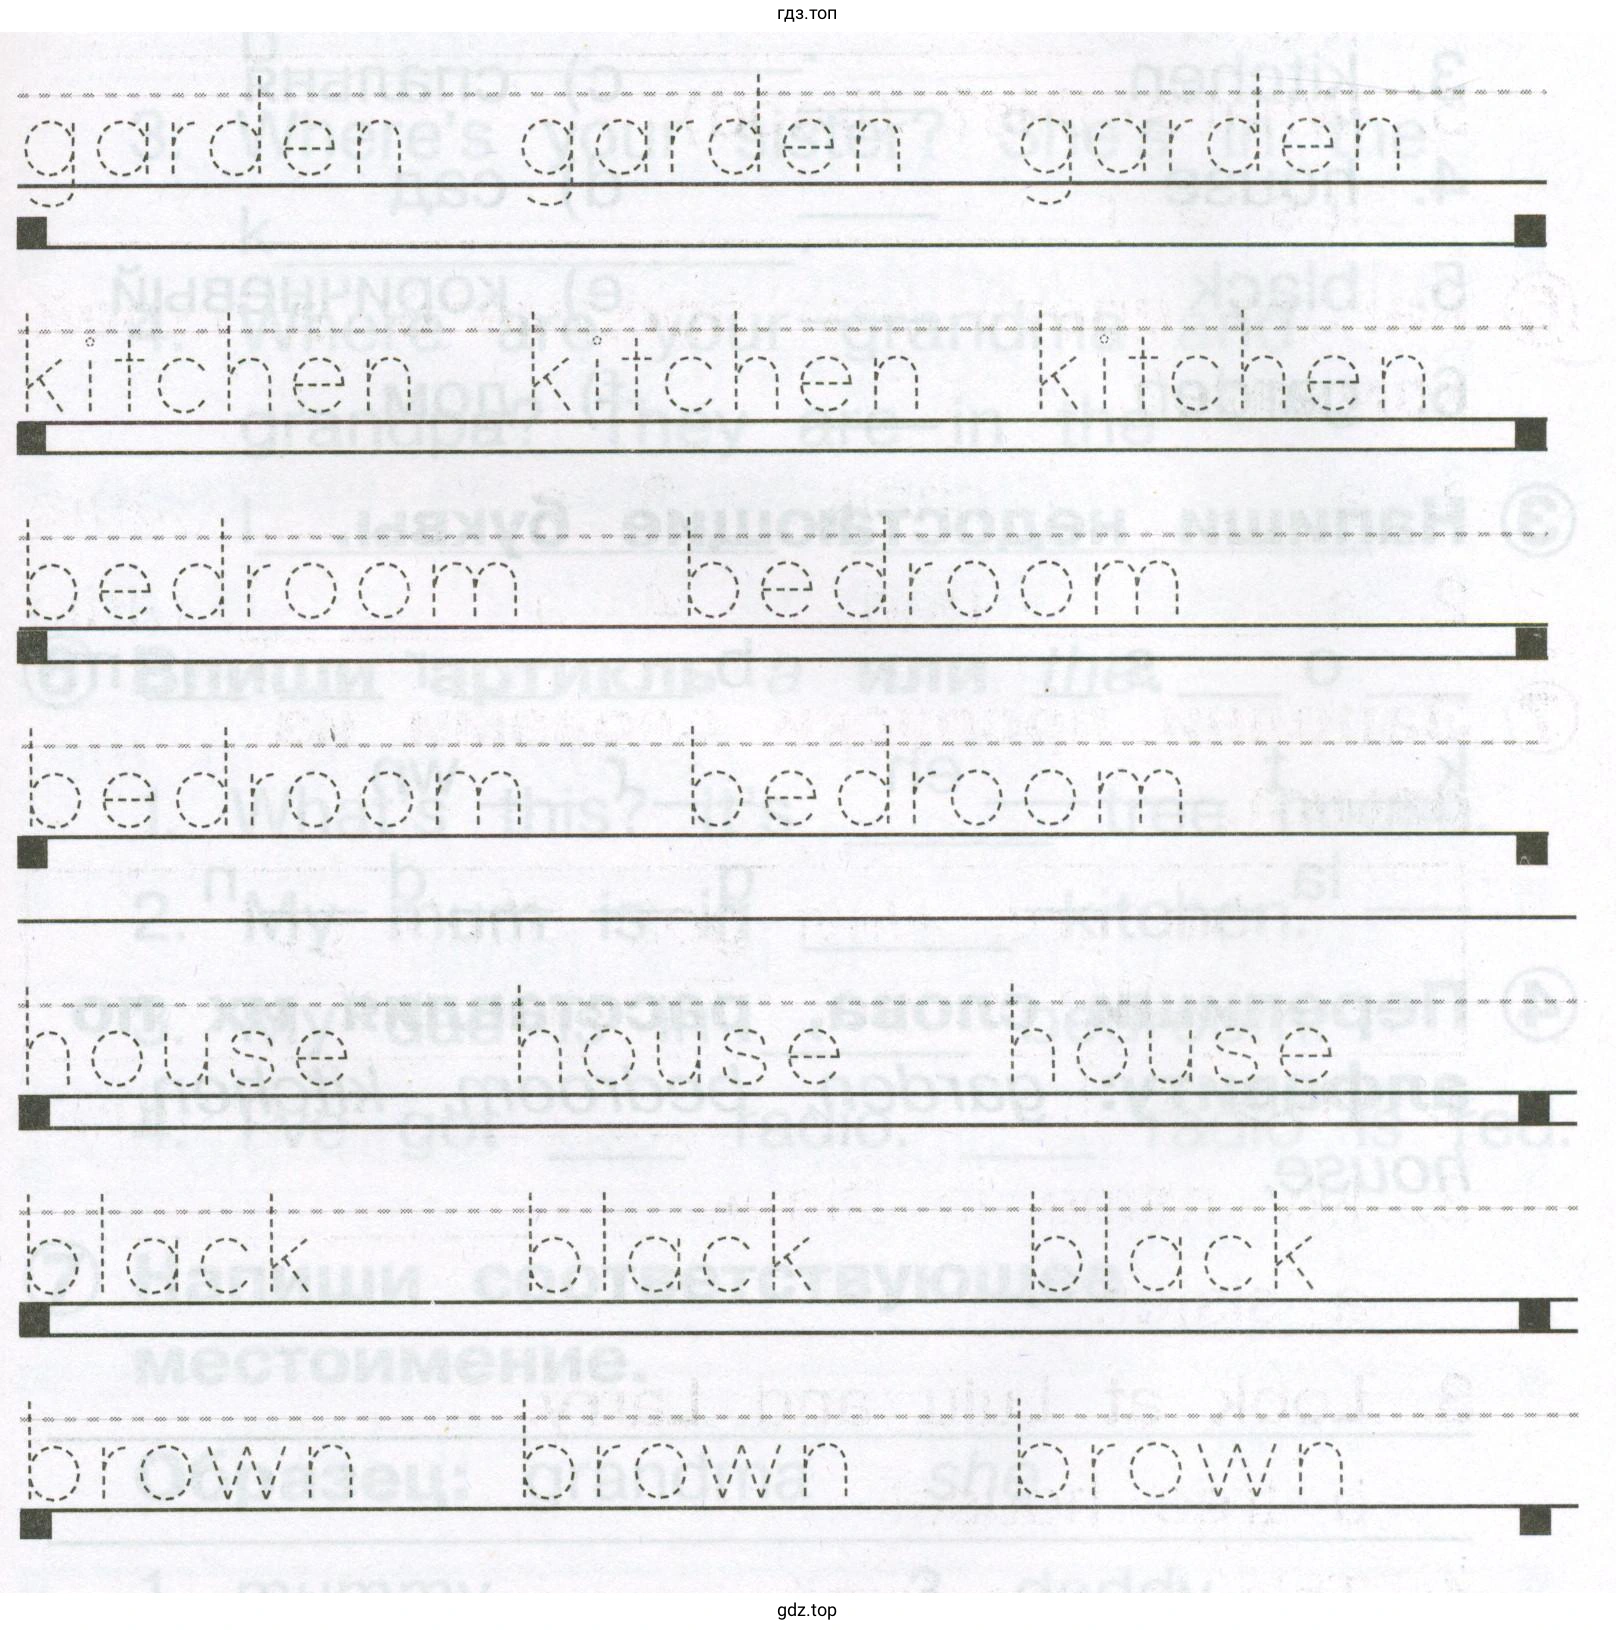 гдз.топ
garden garden garden
kitchen kitchen kitchen
bedroom bedroom
bedroom bedroom
house house house
black black black
brown brown brown
gdz.top